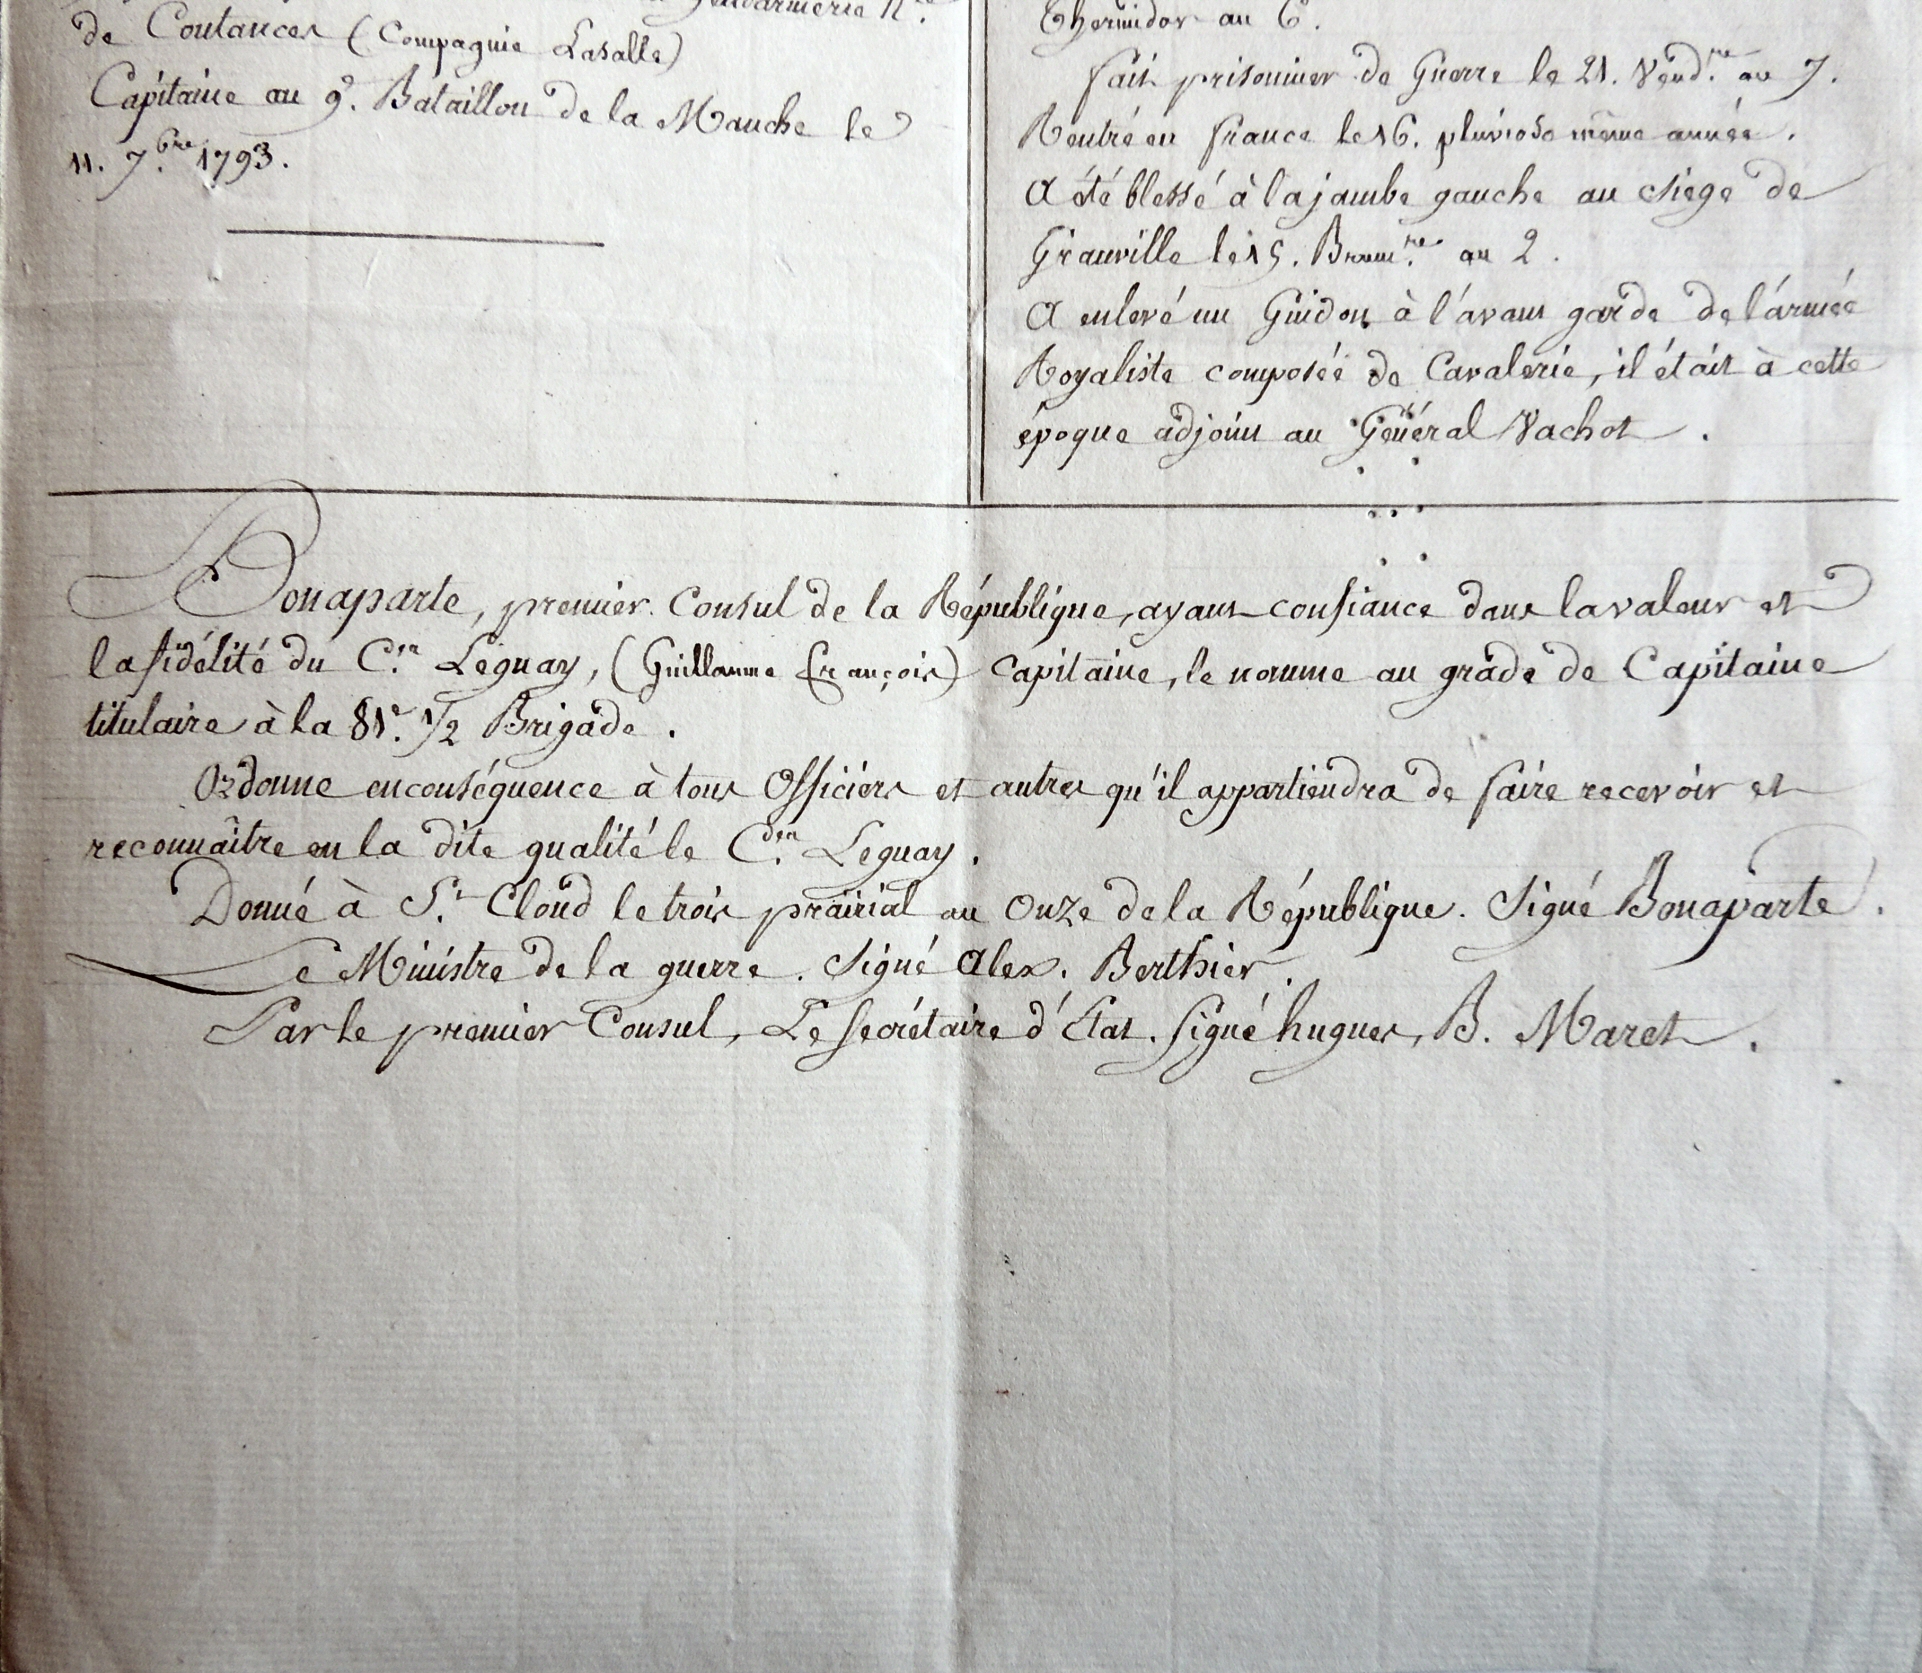 Gendarmerie N.le
de Coutances (Compagnie Lasalle)
Capitaine au 9e. Bataillon de la Manche le
11. 7.bre 1793.
Thermidor an 6e.
fait prisonnier de Guerre le 21. Vend.re an 7.
Rentré en france le 16. pluviose même année.
A été blessé à la jambe gauche au Siege de
Granville le 15. Brum.re an 2.
A enlevé un Guidon à l'avant garde de l'armée
Royaliste composée de Cavalerie, il était à cette
époque adjoint au Général Vachot.
Bonaparte, premier Consul de la République, ayant confiance dans la valeur et
la fidélité du C.en Leguay, (Guillaume François) Capitaine, le nomme au grade de Capitaine
titulaire à la 81e. 1/2 Brigade.
Ordonne en conséquence à tous Officiers et autres qu'il appartiendra de faire recevoir et
reconnaître en la dite qualité le C.en Leguay.
Donné à S.t Cloud le trois prairial an Onze de la République. Signé Bonaparte.
Le Ministre de la guerre. Signé Alex. Berthier.
Par le premier Consul, Le Secrétaire d'État. Signé hugues, B. Maret.